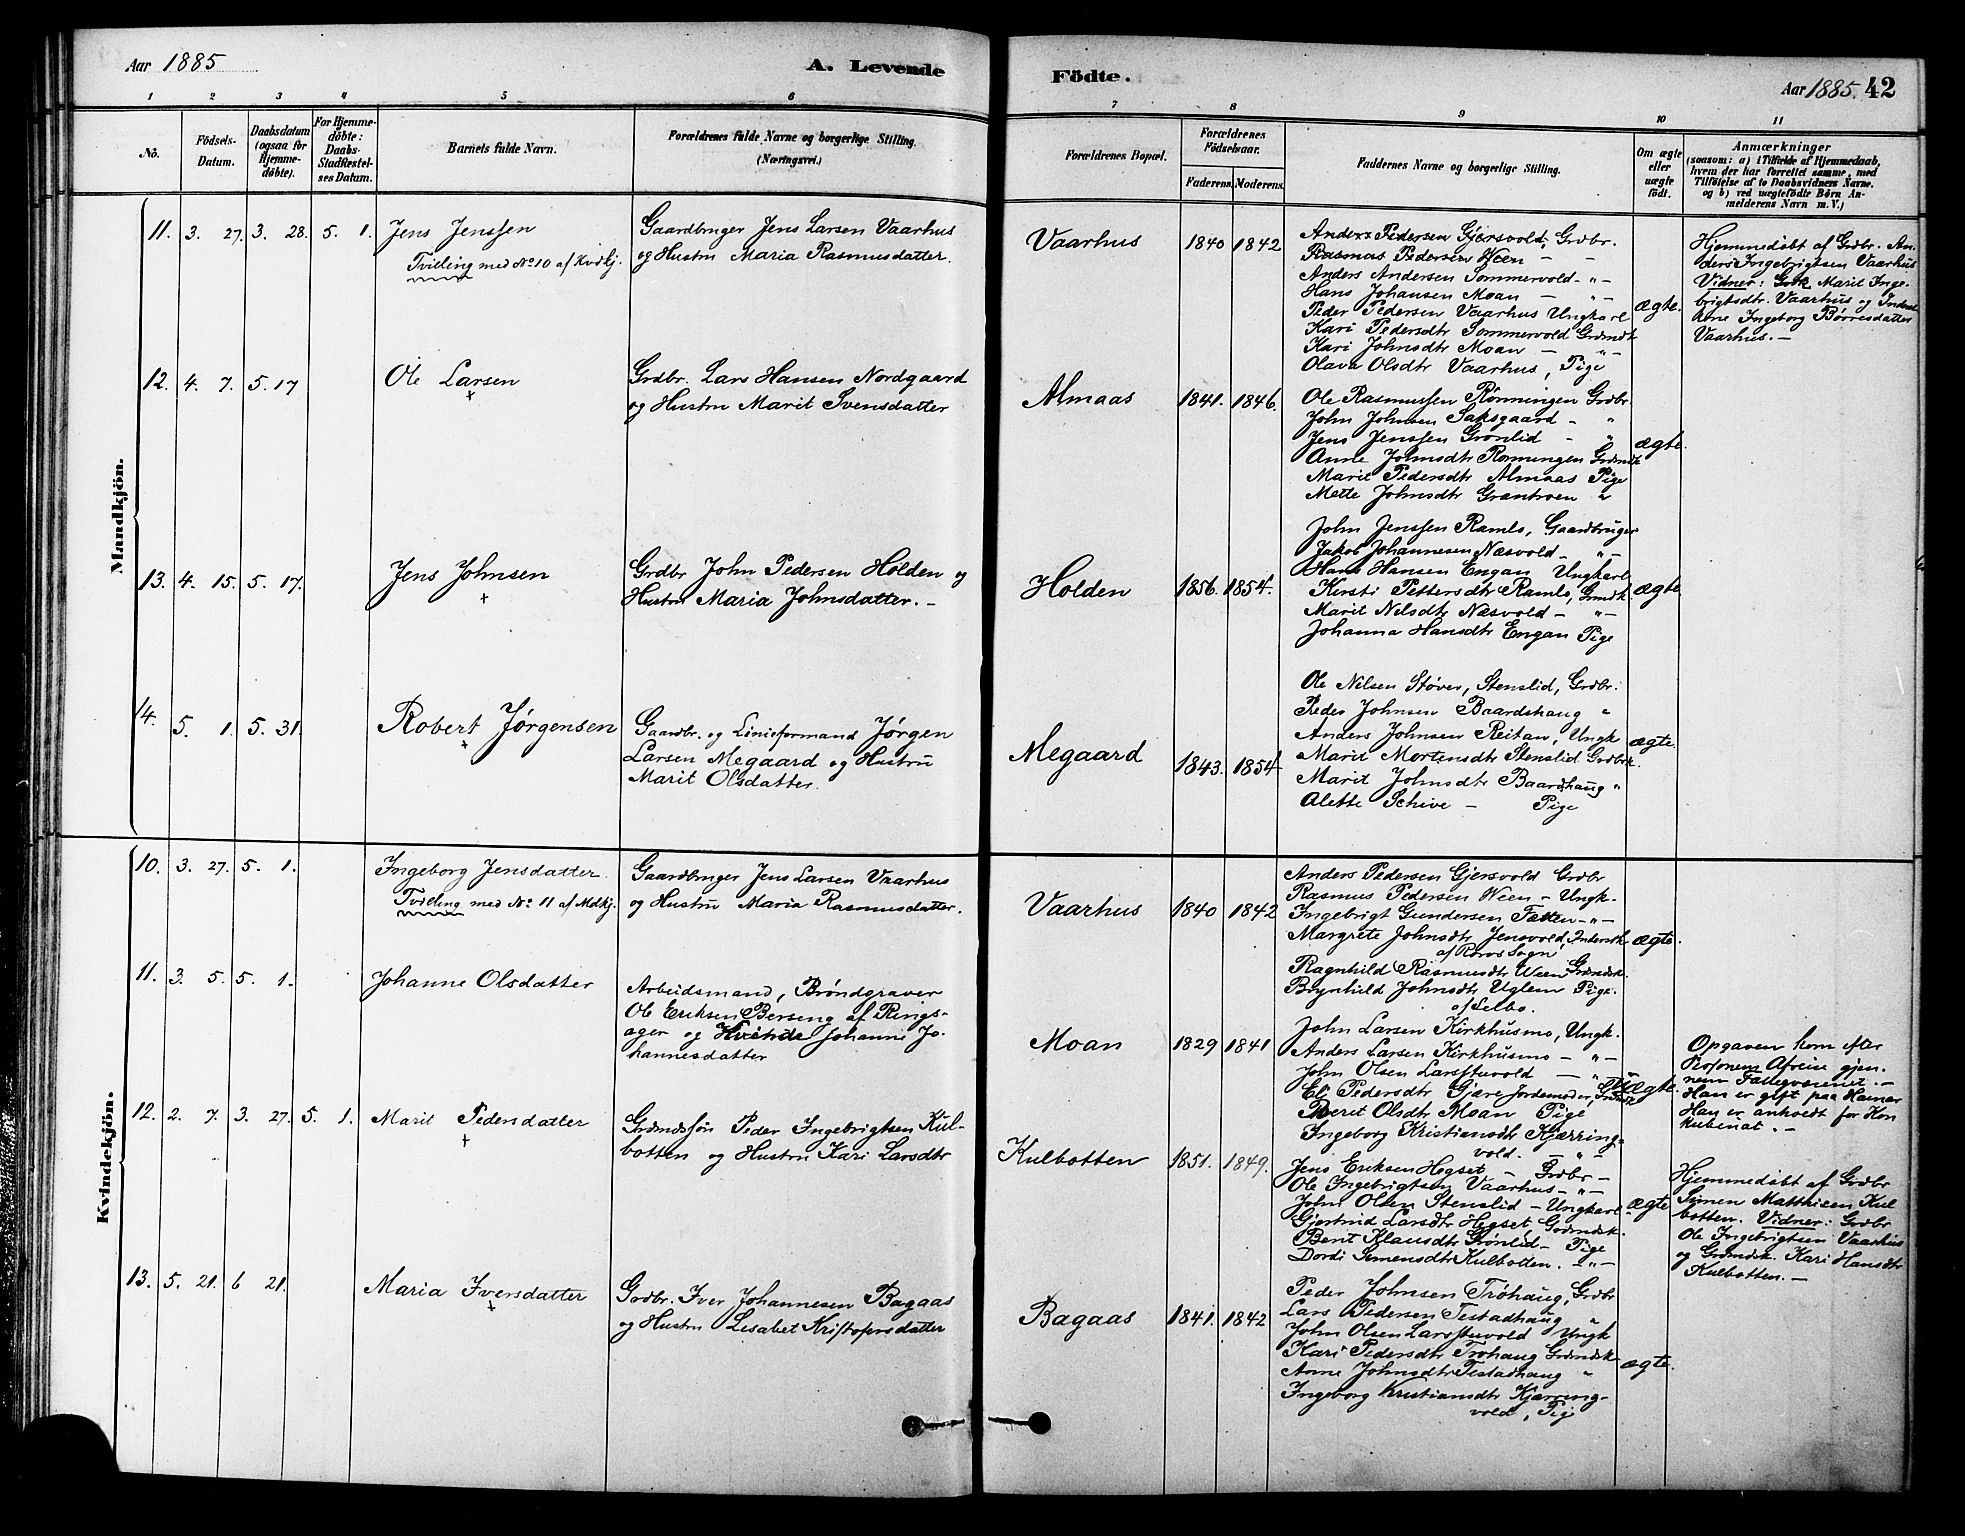 Aar 1885
A. Levende
1 2 3 4 5 6
No.
Födsels-
Datum.
Daabsdatum
(ogsaa for
Hjemme-
döbte).
For Hjemme-
döbte:
Daabs-
Stadfæstel-
ses Datum.
Barnets fulde Navn.
Forældrenes fulde Navne og borgerlige Stilling.
(Næringsvei.)
Mandkjön.
11. 3. 27. 3. 28. 5. 1. Jens Jenssen
Tvilling med No 10 af Kvdkj.
Gaardbruger Jens Larsen Vaarhus
og Hustru Maria Rasmusdatter.
12. 4. 7. 5. 17 Ole Larsen
+
Grdbr. Lars Hansen Nordgaard
og Hustru Marit Svensdatter
13. 4. 15. 5. 17. Jens Johnsen
+
Grdbr John Pedersen Holden og
Hustru Maria Johnsdatter. –
14. 5. 1. 5. 31. Robert Jørgensen
+
Gaardbr. og Linieformand Jørgen
Larsen Megaard og Hustru
Marit Olsdatter.
Kvindekjön.
10. 3. 27. 5. 1. Ingeborg Jensdatter.
Tvilling med No 11 af Mdkj.
Gaardbruger Jens Larsen Vaarhus
og Hustru Maria Rasmusdatter.
11. 3. 5. 5. 1. Johanne Olsdatter
Arbeidsmand, Brøndgraver
Ole Eriksen Berseng af Rings-
ager og Kvinde Johanne Jo-
hannesdatter
12. 2. 7. 3. 27. 5. 1. Marit Pedersdatter
+
Grdmdssøn Peder Ingebrigtsen Kul-
botten og Hustru Kari Larsdtr
13. 5. 21. 6 21. Maria Iversdatter
+
Grdbr. Iver Johannesen Bagaas
og Hustru Lisabet Kristofersdatter
Födte.
Aar 1885. 42
7 8 9 10 11
Forældrenes Bopæl.
Forældrenes
Födselsaar.
Faderens. Moderens.
Faddernes Navne og borgerlige Stilling.
Om ægte
eller
uægte
födt.
Anmærkninger
(saasom: a) i Tilfælde af Hjemmedaab,
hvem der har forrettet samme, med
Tilföielse af to Daabsvidners Navne.
og b) ved uægtefödte Börn An-
melderens Navn m. V.)
Vaarhus 1840 1842
Anders Pedersen Gjersvold, Grdbr.
Rasmus Pedersen Ween – –
Anders Andersen Sommervold – " –
Hans Johansen Moan – " –
Peder Pedersen Vaarhus Ungkarl
Kari Pedersdtr Sommervold Grdmdsk
Kari Johnsdtr Moan – " –
Olava Olsdtr Vaarhus, Pige
ægte.
Hjemmedøbt af Grdbr. An-
ders Ingebrigtsen Vaarhus
Vidner: Grk Marit Inge-
brigtsdtr. Vaarhus og Inderst
Ingeborg Børresdatter
Vaarhus. –
Almaas 1841. 1846.
Ole Rasmussen Rønningen Grdbr.
John Johnsen Saksgaard – "
Jens Jenssen Grønlid – "
Anne Johnsdtr Rønningen Grdmdsk
Marit Pedersdtr Almaas Pige
Mette Johnsdtr Grantroen "
ægte.
Holden 1856. 1854.
John Jenssen Ramlo, Gaardbruger
Jakob Johannesen Næsvold – " –
Hans Hansen Engan Ungkarl
Kirsti Pettersdtr Ramlo, Grmdk.
Marit Nilsdtr Næsvold – " –
Johanna Hansdtr Engan Pige
ægte
Megaard 1843. 1854
Ole Nilsen Støver, Stenslid, Grdbr.
Peder Johnsen Baardshaug "
Anders Johnsen Reitan, Ungk
Marit Mortensdtr Stenslid Grdbrk.
Marit Johnsdtr Baardshaug "
Alette Schive – Pige
ægte.
Vaarhus 1840 1842
Anders Pedersen Gjersvold Grdbr
Rasmus Pedersen Ween – Ungk.
Ingebrigt Gundersen Tatten – " –
Margrete Johnsdtr Jensvold, Inderstk
af Røros Sogn
Ragnhild Rasmusdtr Ween Grdmdsk.
Brynhild Johnsdtr Uglem Pige.
af Selbo.
ægte.
Moan 1829 1841
John Larsen Kirkhusmo, Ungk.
Anders Larsen Kirkhusmo – " –
John Olsen Larsstuvold – " –
Eli Pedersdtr Gjære Jordemoder,
Beret Olsdtr Moan Pige
Ingeborg Kristiansdtr Kjærring-
vold. – " –
Uægte.
Opgaven kom efter
Personens Afreise gjen-
nem Fattigvæsenet. –
Han er gift paa Hamar
Han er anholdt for Kon
kubinat. –
Kulbotten 1851. 1849.
Jens Eriksen Hegset – Grdbr –
Ole Ingebrigtsen Vaarhus – " –
John Olsen Stenslid – Ungkarl
Gjertrud Larsdtr Hegset Grdmdsk.
Berit Klausdtr Grønlid – Pige
Dordi Simensdtr Kulbotten. – " –
ægte
Hjemmedøbt af Grdbr
Simen Matthisen Kul
botten. Vidner: Grdbr
Ole Ingebrigtsen Vaarhus
og Grdmdsk. Kari Hansdtr
Kulbotten. –
Bagaas 1841. 1842
Peder Johnsen Trøhaug, Grdbr
Lars Pedersen Testadhaug "
John Olsen Larsstuvold Ungk
Kari Pedersdtr Trøhaug Grdmdsk
Anne Johnsdtr Testadhaug "
Ingeborg Kristiansdtr Kjærring-
vold, Pige
ægte.